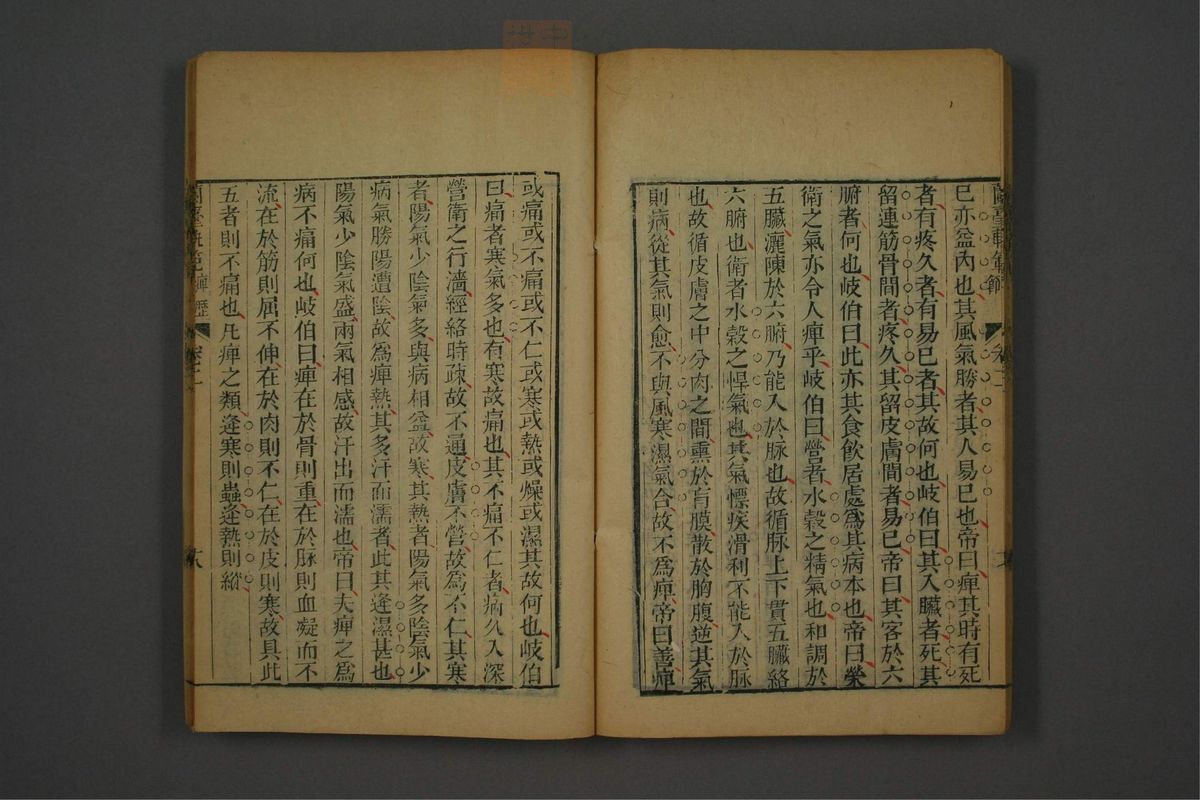 巳亦益內也其風氣勝者其人易巳也帝曰痺其時有死
者有疼久者有易巳者其故何也岐伯曰其入臟者死其
留連筋骨間者疼久其留皮膚間者易巳帝曰其客於六
腑者何也岐伯曰此亦其食飲居處爲其病本也帝曰榮
衛之氣亦令人痺乎岐伯曰營者水穀之精氣也和調於
五臟灑陳於六腑乃能入於脉也故循脉上下貫五臟絡
六腑也衛者水穀之悍氣也其氣慓疾滑利不能入於脉
也故循皮膚之中分肉之間熏於肓膜散於胸腹逆其氣
則病從其氣則愈不與風寒濕氣合故不爲痺帝曰善痺
或痛或不痛或不仁或寒或熱或燥或濕其故何也岐伯
曰痛者寒氣多也有寒故痛也其不痛不仁者病久入深
營衛之行濇經絡時疎故不通皮膚不營故爲不仁其寒
者陽氣少陰氣多與病相益故寒其熱者陽氣多陰氣少
病氣勝陽遭陰故爲痺熱其多汗而濡者此其逢濕甚也
陽氣少陰氣盛兩氣相感故汗出而濡也帝曰夫痺之爲
病不痛何也岐伯曰痺在於骨則重在於脉則血凝而不
流在於筋則屈不伸在於肉則不仁在於皮則寒故具此
五者則不痛也凡痺之類逢寒則蟲逢熱則縱
痺歷